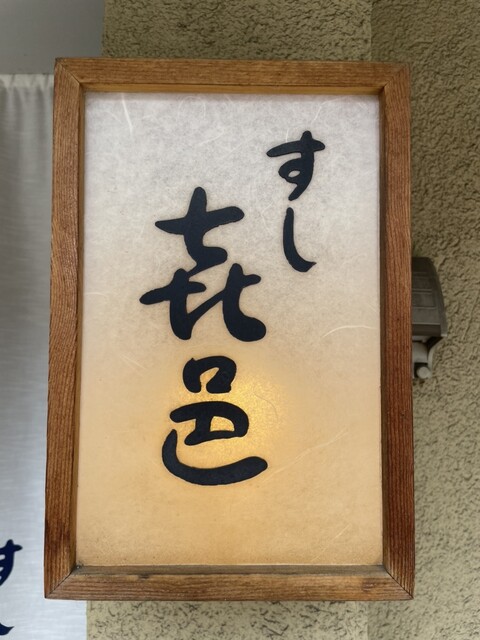 すし
㐂邑
す